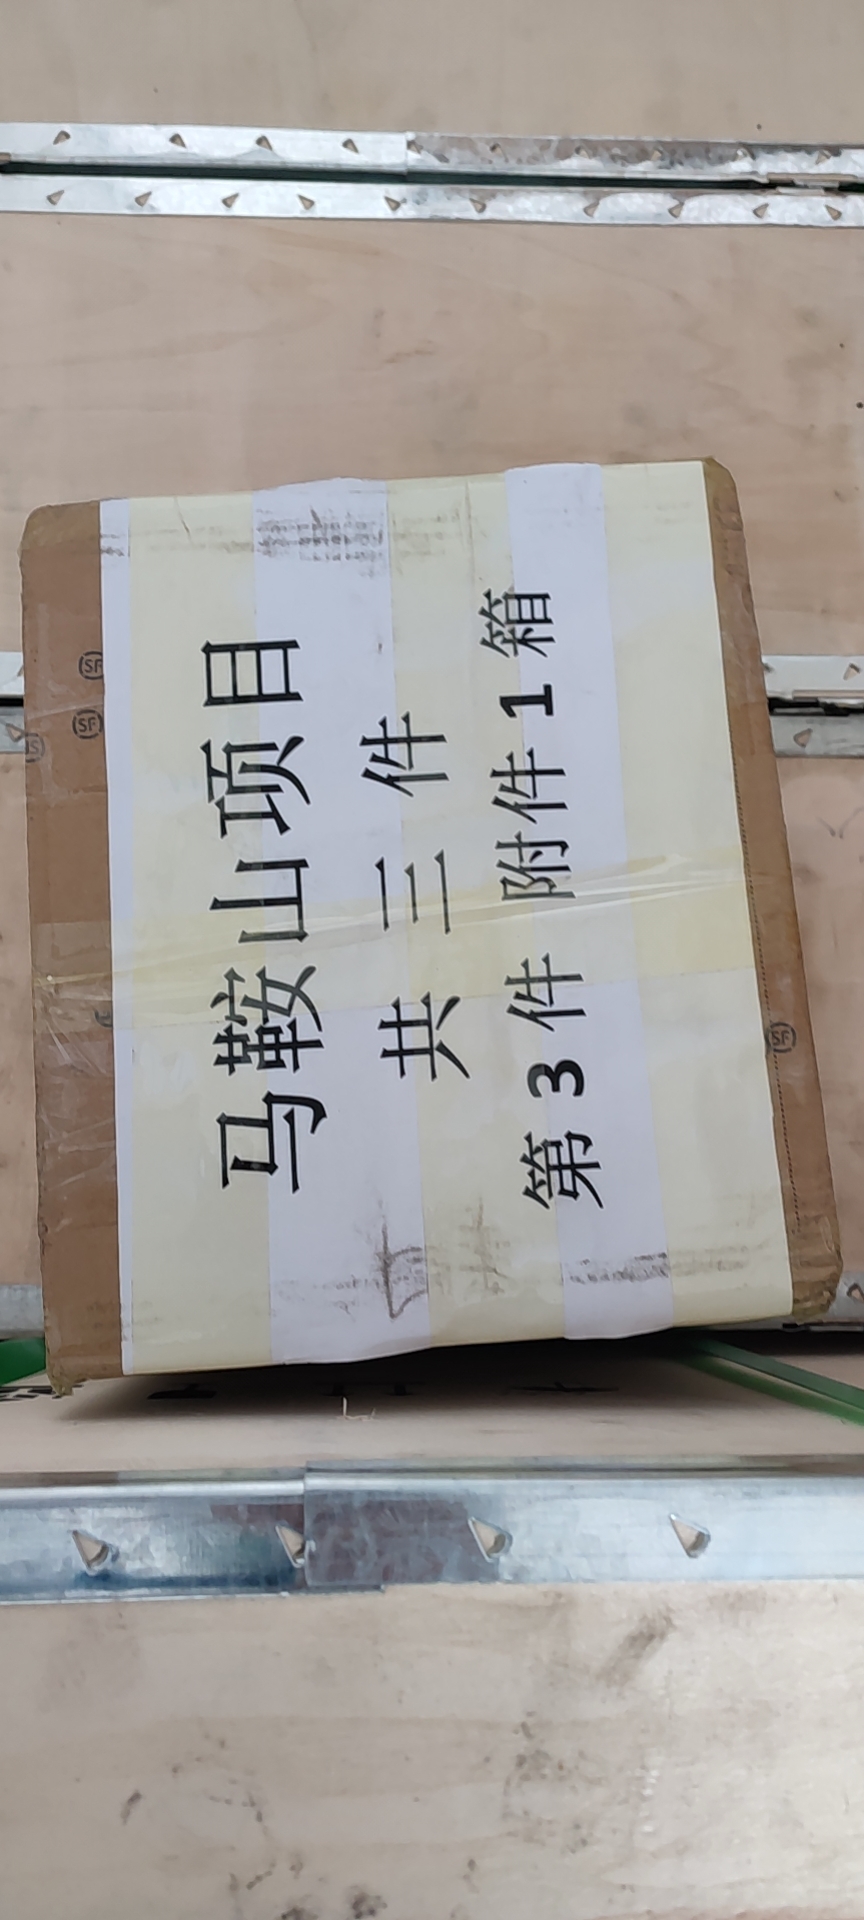 马鞍山项目
共 三 件
第 3 件 附件 1 箱
SF
SF
SF